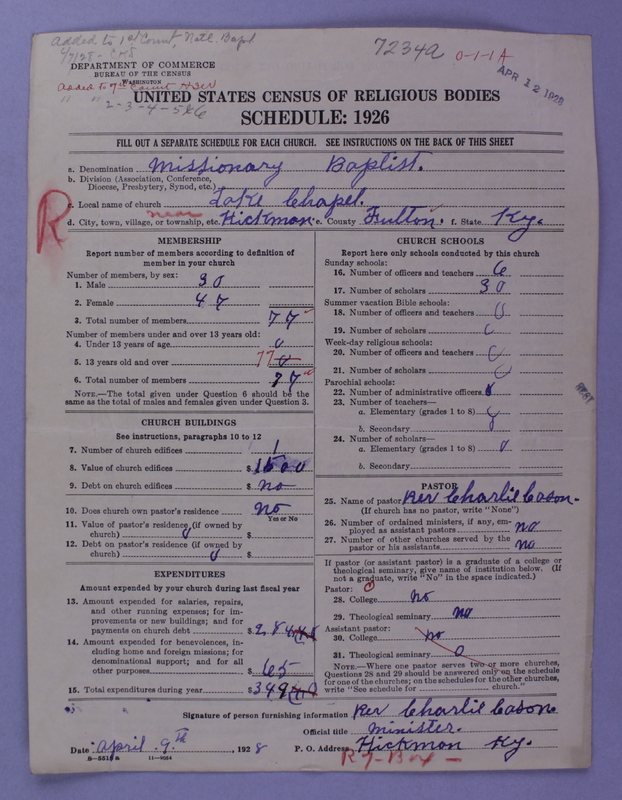 added to 1st Count, Natl. Bapt
7234a
0-1-1A
APR 12 1928
DEPARTMENT OF COMMERCE
BUREAU OF THE CENSUS
WASHINGTON
added to 7th Count
" " 2-3-4-5&6
UNITED STATES CENSUS OF RELIGIOUS BODIES
SCHEDULE: 1926
FILL OUT A SEPARATE SCHEDULE FOR EACH CHURCH. SEE INSTRUCTIONS ON THE BACK OF THIS SHEET
a. Denomination Missionary Baptist.
b. Division (Association, Conference,
Diocese, Presbytery, Synod, etc.)
R
c. Local name of church Lake Chapel.
near
d. City, town, village, or township, etc. Hickman. e. County Fulton. f. State Ky.
MEMBERSHIP
Report number of members according to definition of
member in your church
Number of members, by sex:
1. Male 30
2. Female 47
3. Total number of members 77
Number of members under and over 13 years old:
4. Under 13 years of age 0
5. 13 years old and over 77 0
6. Total number of members 77
NOTE.—The total given under Question 6 should be the
same as the total of males and females given under Question 3.
CHURCH BUILDINGS
See instructions, paragraphs 10 to 12
7. Number of church edifices 1
8. Value of church edifices $ 1500
9. Debt on church edifices $ no
10. Does church own pastor's residence no
Yes or No
11. Value of pastor's residence (if owned by
church) 0 $
12. Debt on pastor's residence (if owned by
church) 0 $
EXPENDITURES
Amount expended by your church during last fiscal year
13. Amount expended for salaries, repairs,
and other running expenses; for im-
provements or new buildings; and for
payments on church debt $ 284
14. Amount expended for benevolences, in-
cluding home and foreign missions; for
denominational support; and for all
other purposes $ 65
15. Total expenditures during year $ 349
CHURCH SCHOOLS
Report here only schools conducted by this church
Sunday schools:
16. Number of officers and teachers 6
17. Number of scholars 30
Summer vacation Bible schools:
18. Number of officers and teachers 0
19. Number of scholars 0
Week-day religious schools:
20. Number of officers and teachers 0
21. Number of scholars 0
Parochial schools:
22. Number of administrative officers 0
23. Number of teachers—
a. Elementary (grades 1 to 8) 0
b. Secondary
24. Number of scholars—
a. Elementary (grades 1 to 8) 0
b. Secondary
PASTOR
25. Name of pastor Rev Charlie Cason.
(If church has no pastor, write "None")
26. Number of ordained ministers, if any, em-
ployed as assistant pastors no
27. Number of other churches served by the
pastor or his assistants no
If pastor (or assistant pastor) is a graduate of a college or
theological seminary, give name of institution below. (If
not a graduate, write "No" in the space indicated.)
Pastor:
28. College no
29. Theological seminary no
Assistant pastor:
30. College no
31. Theological seminary 0
NOTE.—Where one pastor serves two or more churches,
Questions 28 and 29 should be answered only on the schedule
for one of the churches; on the schedules for the other churches,
write "See schedule for church."
Signature of person furnishing information Rev Charlie Cason
Official title minister.
Date april 9th, 1928 P. O. Address Hickman Ky.
11—9564